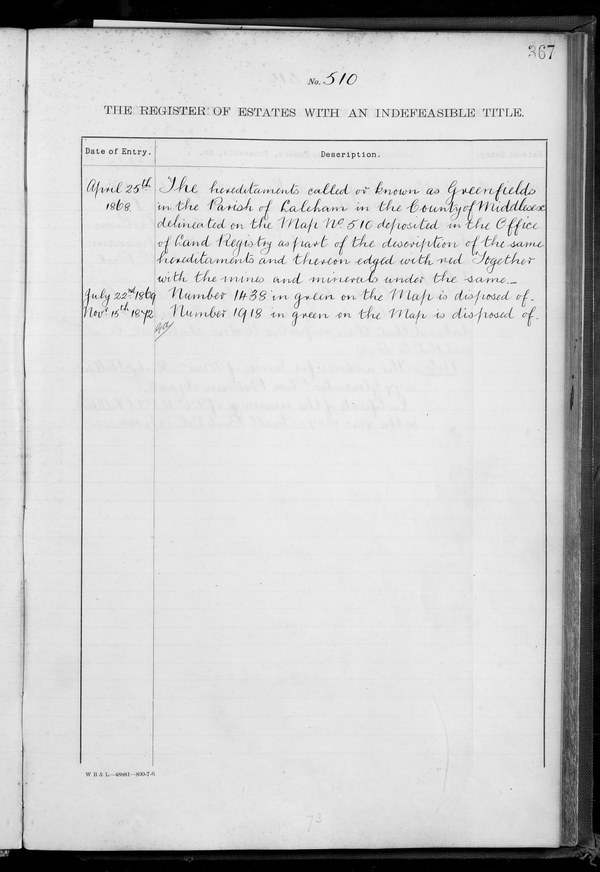 367
No. 510
THE REGISTER OF ESTATES WITH AN INDEFEASIBLE TITLE.
Date of Entry. Description.
April 25th The hereditaments called or known as Greenfields
1868. in the Parish of Laleham in the County of Middlesex
delineated on the Map No 510 deposited in the Office
of Land Registry as part of the description of the same
hereditaments and thereon edged with red Together
with the mines and minerals under the same._
July 22nd 1869 Number 1438 in green on the Map is disposed of.
Novr 15th 1872 Number 1918 in green on the Map is disposed of.
W B & L—48881—800-7-6
73